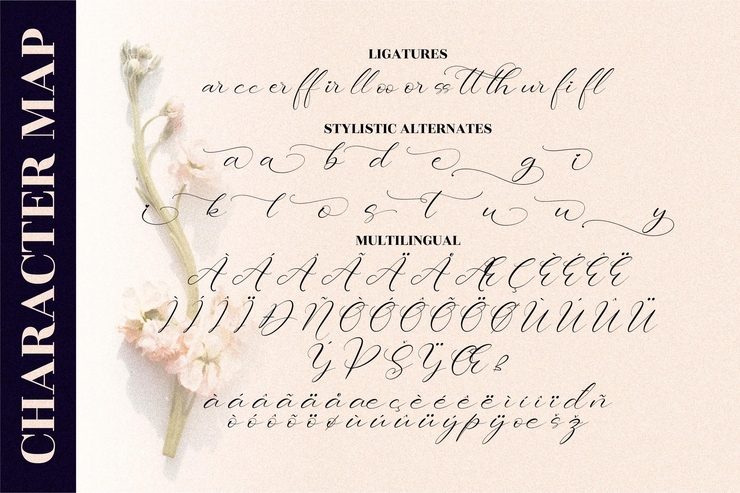 CHARACTER MAP
LIGATURES
ar cc er ff ir ll oo or ss tt th ur fi fl
STYLISTIC ALTERNATES
a a b d e g i
i k l o s t u u y
MULTILINGUAL
À Á Â Ã Ä Å Æ Ç È É Ê Ë
Ì Í Î Ï Ð Ñ Ò Ó Ô Õ Ö Ø Ù Ú Û Ü
Ý Þ Š Ÿ Œ ß
à á â ã ä å æ ç è é ê ë ì í î ï đ ñ
ò ó ô õ ö ø ù ú û ü ý þ ÿ œ š ž